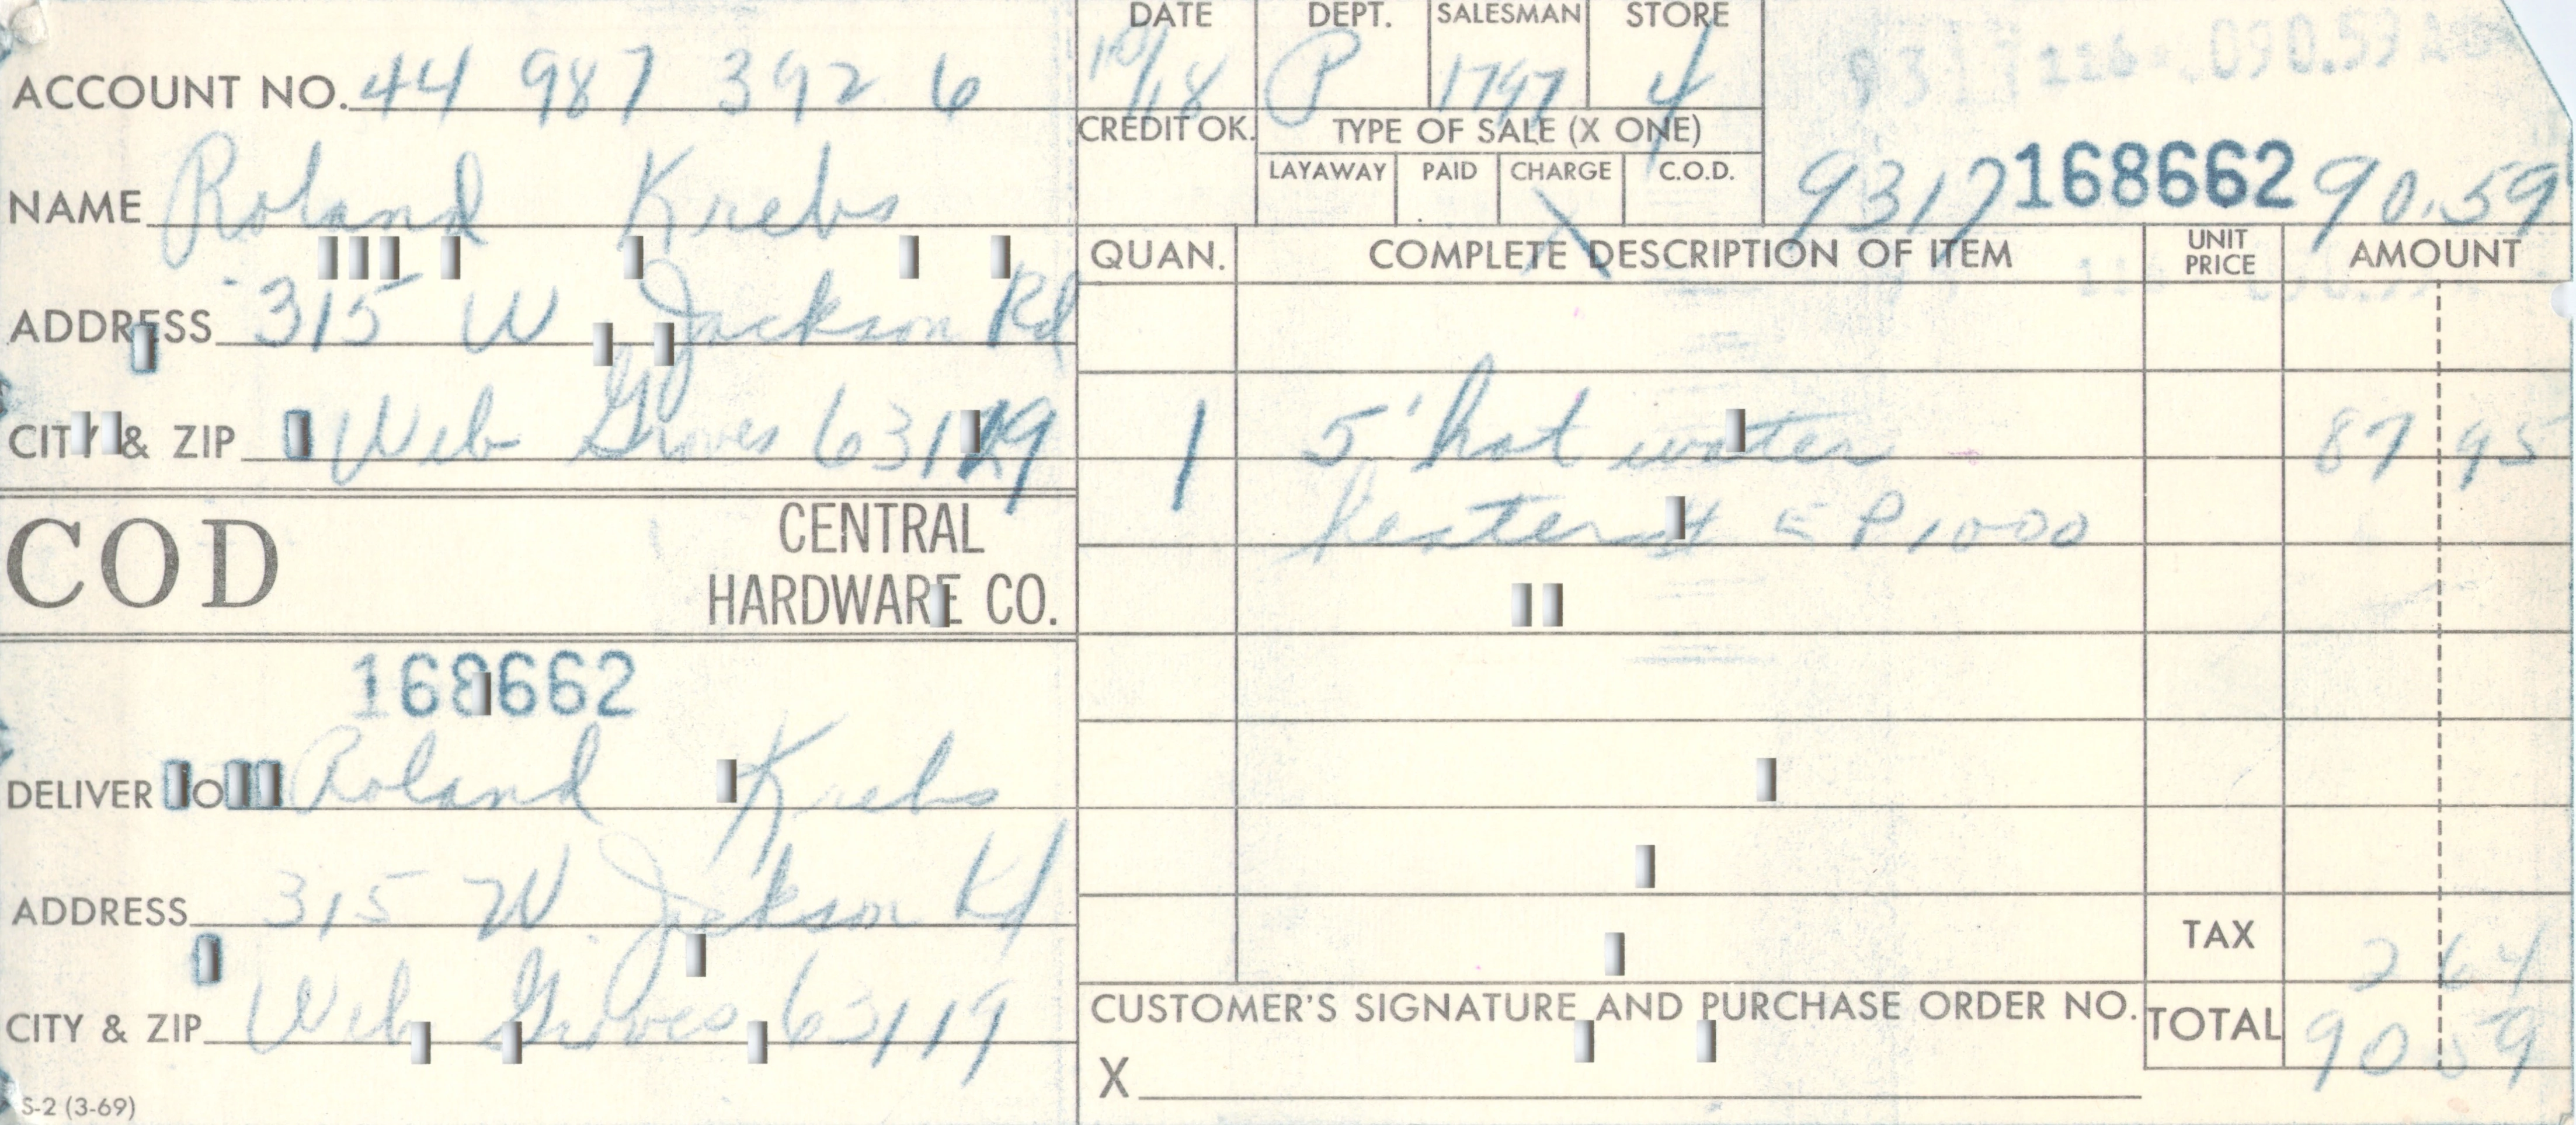 ACCOUNT NO. 44 987 392 6
NAME Roland Krebs
ADDRESS 315 W Jackson Rd
CITY & ZIP Web Groves 63119
COD
CENTRAL
HARDWARE CO.
168662
DELIVER TO Roland Krebs
ADDRESS 315 W Jackson Rd
CITY & ZIP Web Groves 63119
S-2 (3-69)
DATE DEPT. SALESMAN STORE
10/18 P 1797 4
CREDIT OK. TYPE OF SALE (X ONE)
LAYAWAY PAID CHARGE C.O.D.
X
090.59
9317 168662 90.59
QUAN. COMPLETE DESCRIPTION OF ITEM UNIT PRICE AMOUNT
1 5' hot water 87 95
heater # EP1000
TAX 2 64
CUSTOMER'S SIGNATURE AND PURCHASE ORDER NO.
TOTAL 90 59
X